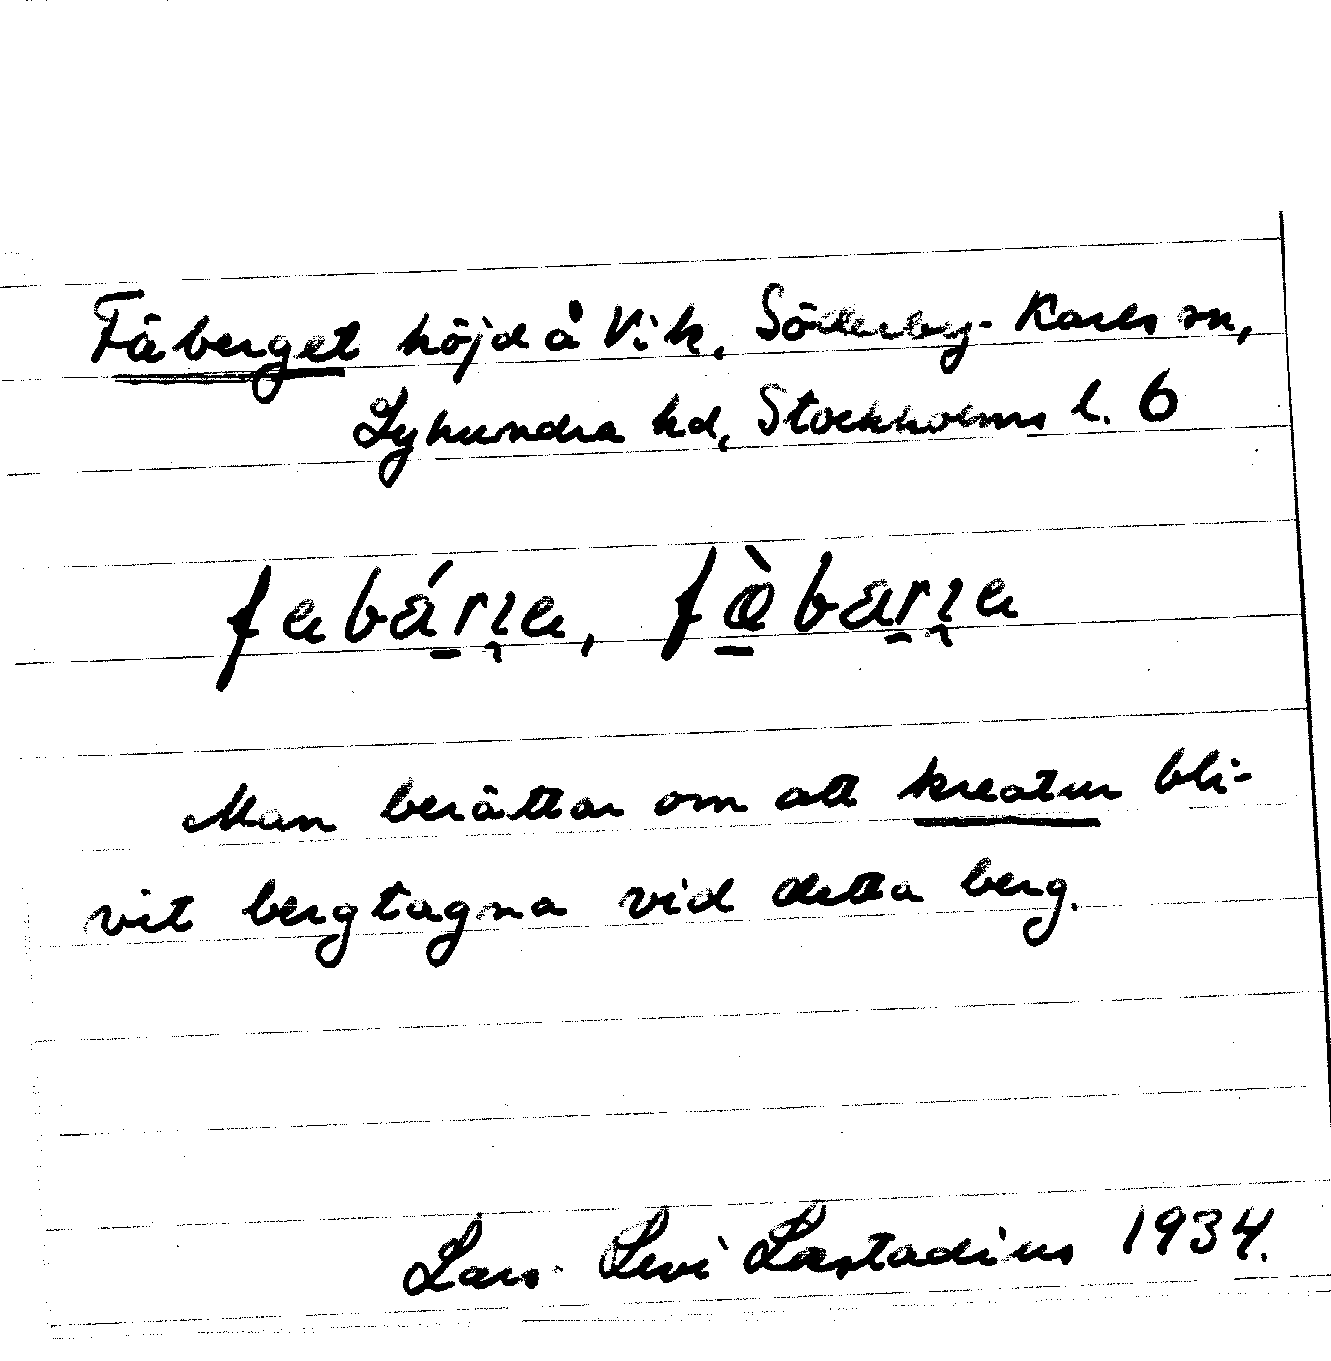 Fäberget höjd å Vik, Söderby-Karls sn,
Lyhundra hd, Stockholms l. 6
Man berättar om att kreatur bli-
vit bergtagna vid detta berg.
Lars-Levi Læstadius 1934.